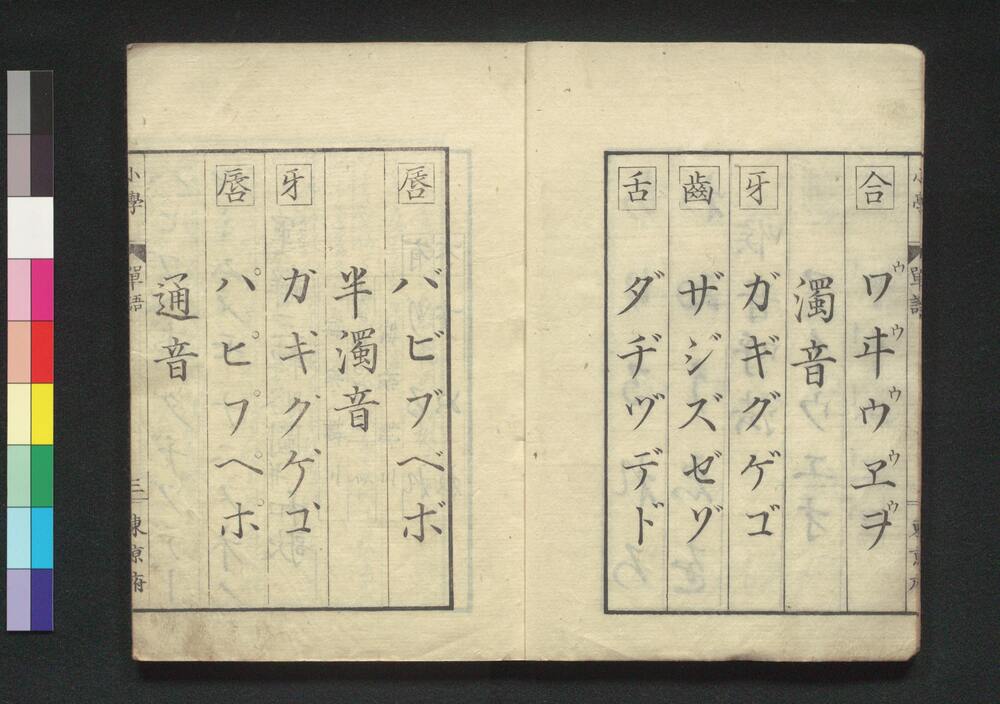 小學 單語 東京府
合 ワヰウヱヲ
ウウウウウ
濁音
牙 ガギグゲゴ
齒 ザジズゼゾ
舌 ダヂヅデド
唇 バビブベボ
半濁音
牙 カ゚キ゚ク゚ケ゚コ゚
唇 パピプペポ
通音
小學 單語 三 東京府